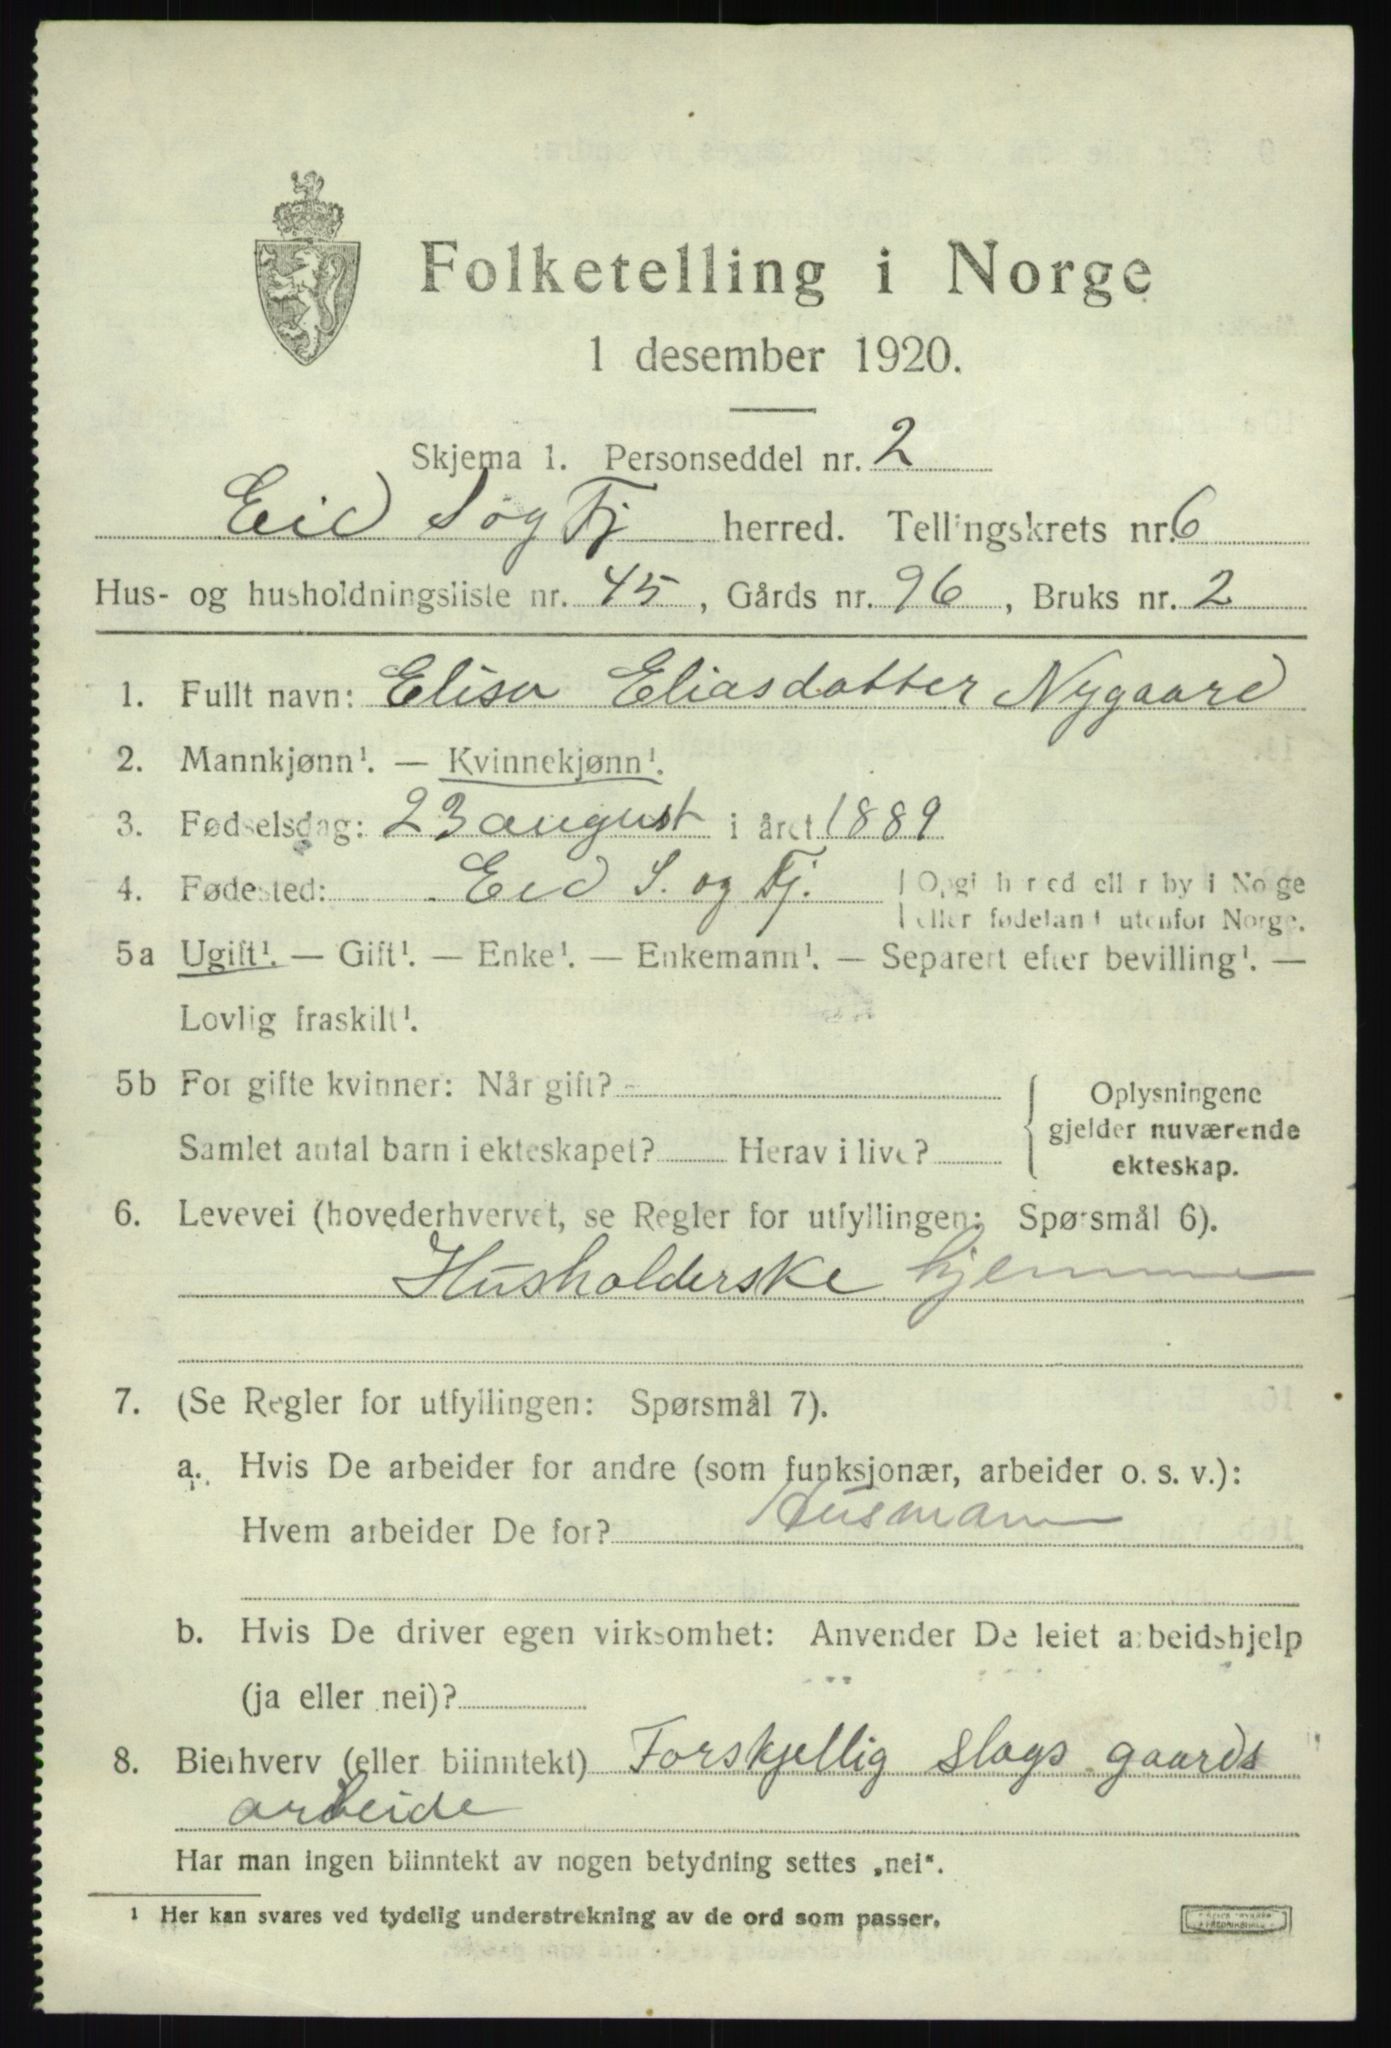 Folketelling i Norge
1 desember 1920.
Skjema 1. Personseddel nr. 2
Eid S og Fj herred. Tellingskrets nr. 6
Hus- og husholdningsliste nr. 45, Gårds nr. 96, Bruks nr. 2
1. Fullt navn: Elisa Eliasdatter Nygaard
2. Mannkjønn¹. — Kvinnekjønn¹.
3. Fødselsdag: 23 august i året 1889
4. Fødested: Eid S. og Fj. Opgi herred eller by i Norge
eller fødeland utenfor Norge.
5a Ugift¹. — Gift¹. — Enke¹. — Enkemann¹. — Separert efter bevilling¹. —
Lovlig fraskilt¹.
5b For gifte kvinner: Når gift?
Samlet antal barn i ekteskapet? Herav i live?
Oplysningene
gjelder nuværende
ekteskap.
6. Levevei (hovederhvervet, se Regler for utfyllingen: Spørsmål 6).
Husholderske hjemme
7. (Se Regler for utfyllingen: Spørsmål 7).
a. Hvis De arbeider for andre (som funksjonær, arbeider o. s. v.):
Hvem arbeider De for? Husmann
b. Hvis De driver egen virksomhet: Anvender De leiet arbeidshjelp
(ja eller nei)?
8. Bierhverv (eller biinntekt) Forskjellig slags gaards
arbeide
Har man ingen biinntekt av nogen betydning settes „nei“.
¹ Her kan svares ved tydelig understrekning av de ord som passer.